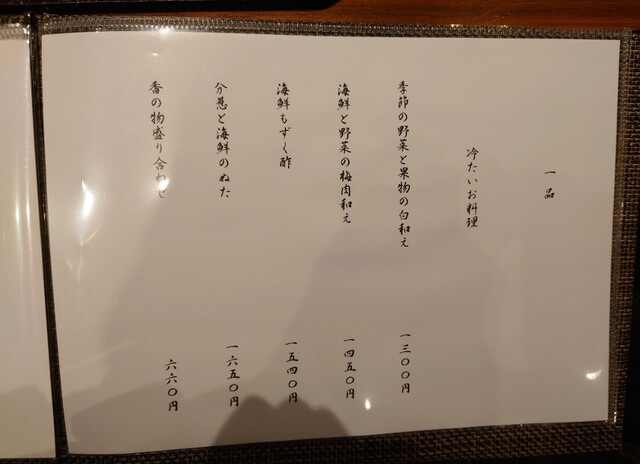 一品
冷たいお料理
季節の野菜と果物の白和え
一三〇〇円
海鮮と野菜の梅肉和え
一四五〇円
海鮮もずく酢
一五四〇円
分葱と海鮮のぬた
一六五〇円
香の物盛り合わせ
六六〇円